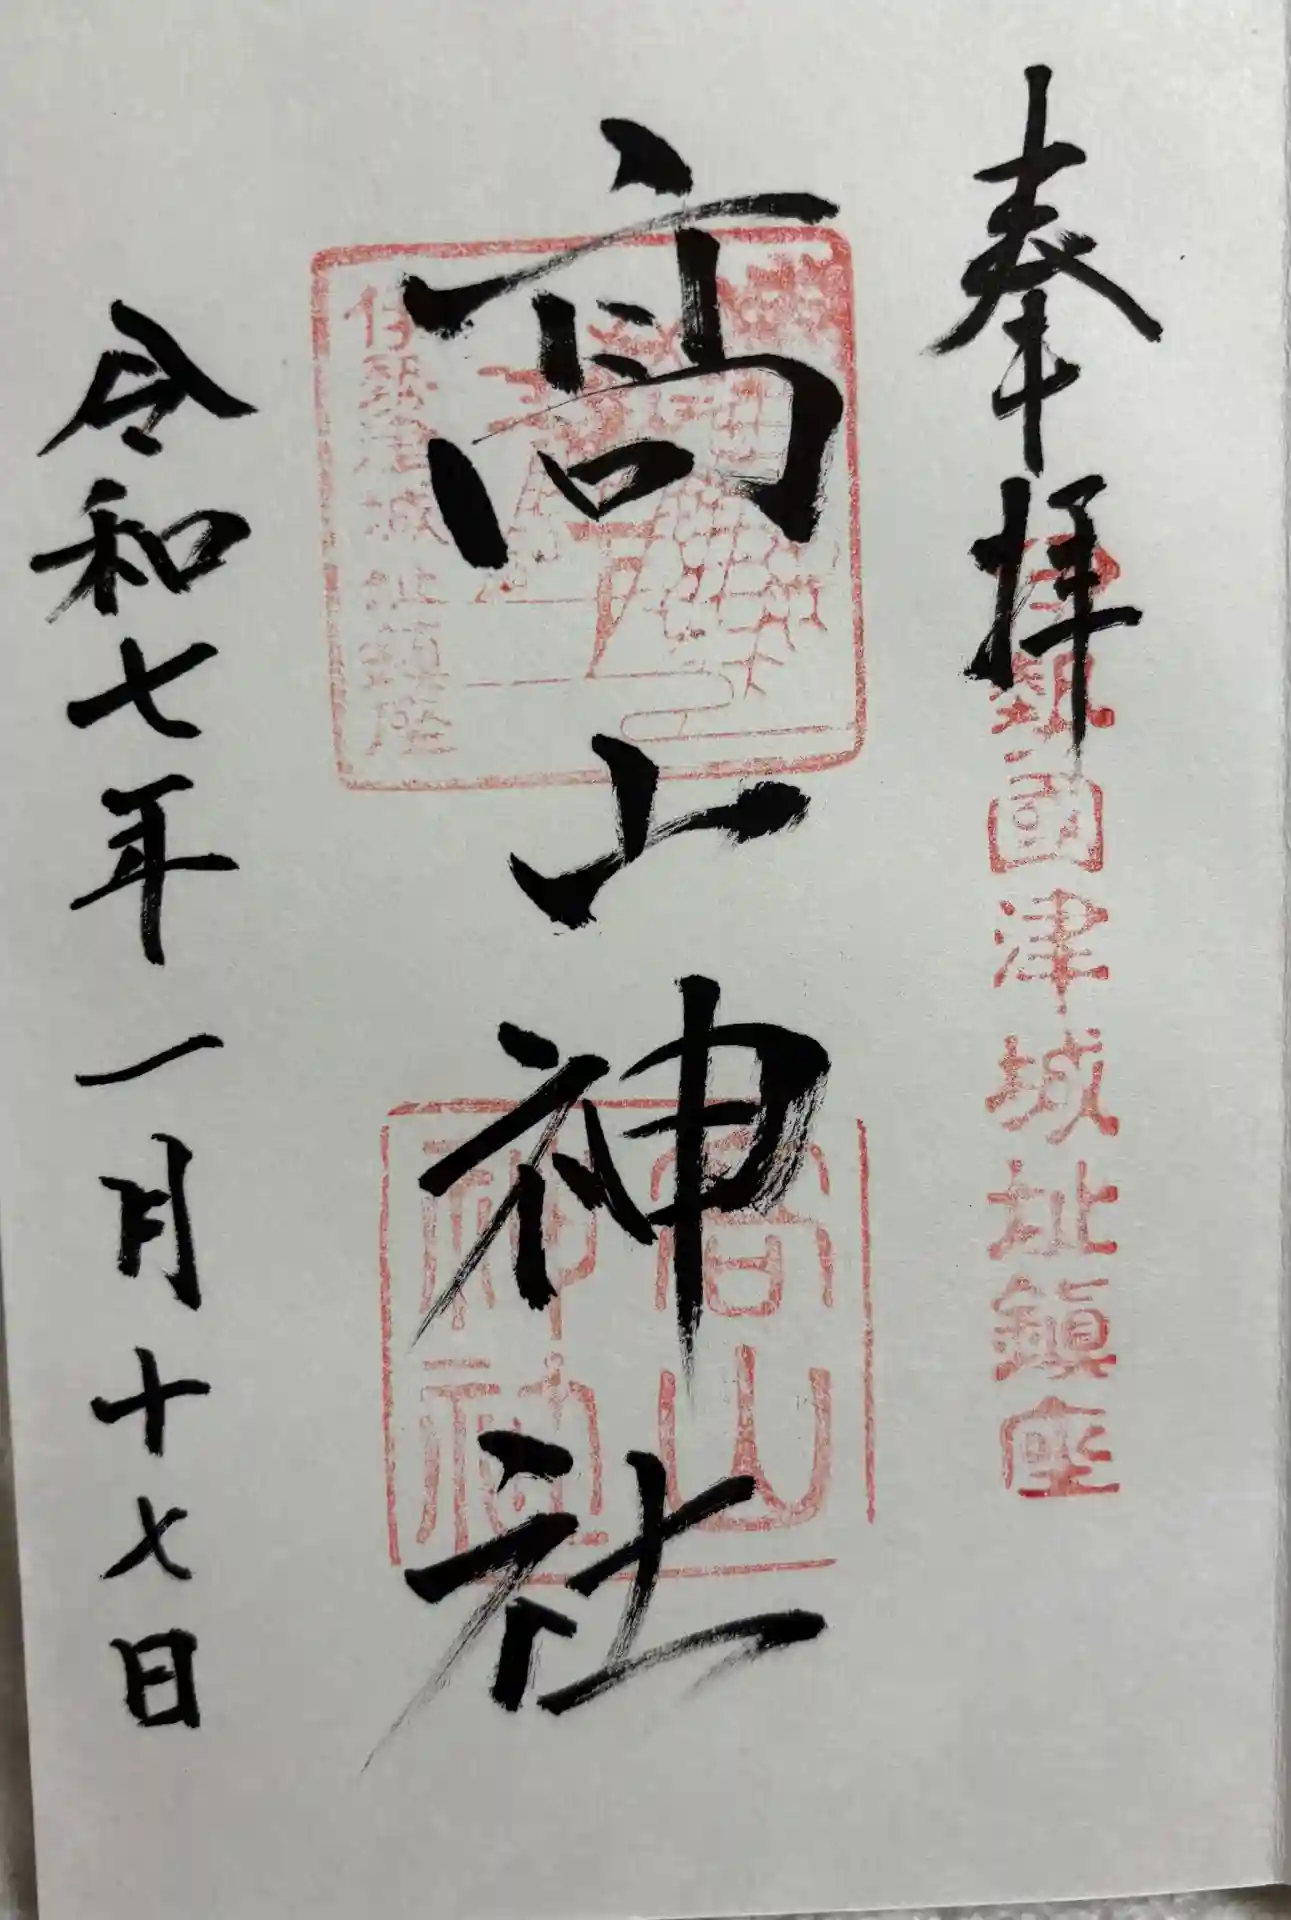 奉拝
伊勢國津城址鎮座
高山神社
伊勢津城址鎮座
高山
神社
令和七年一月十七日